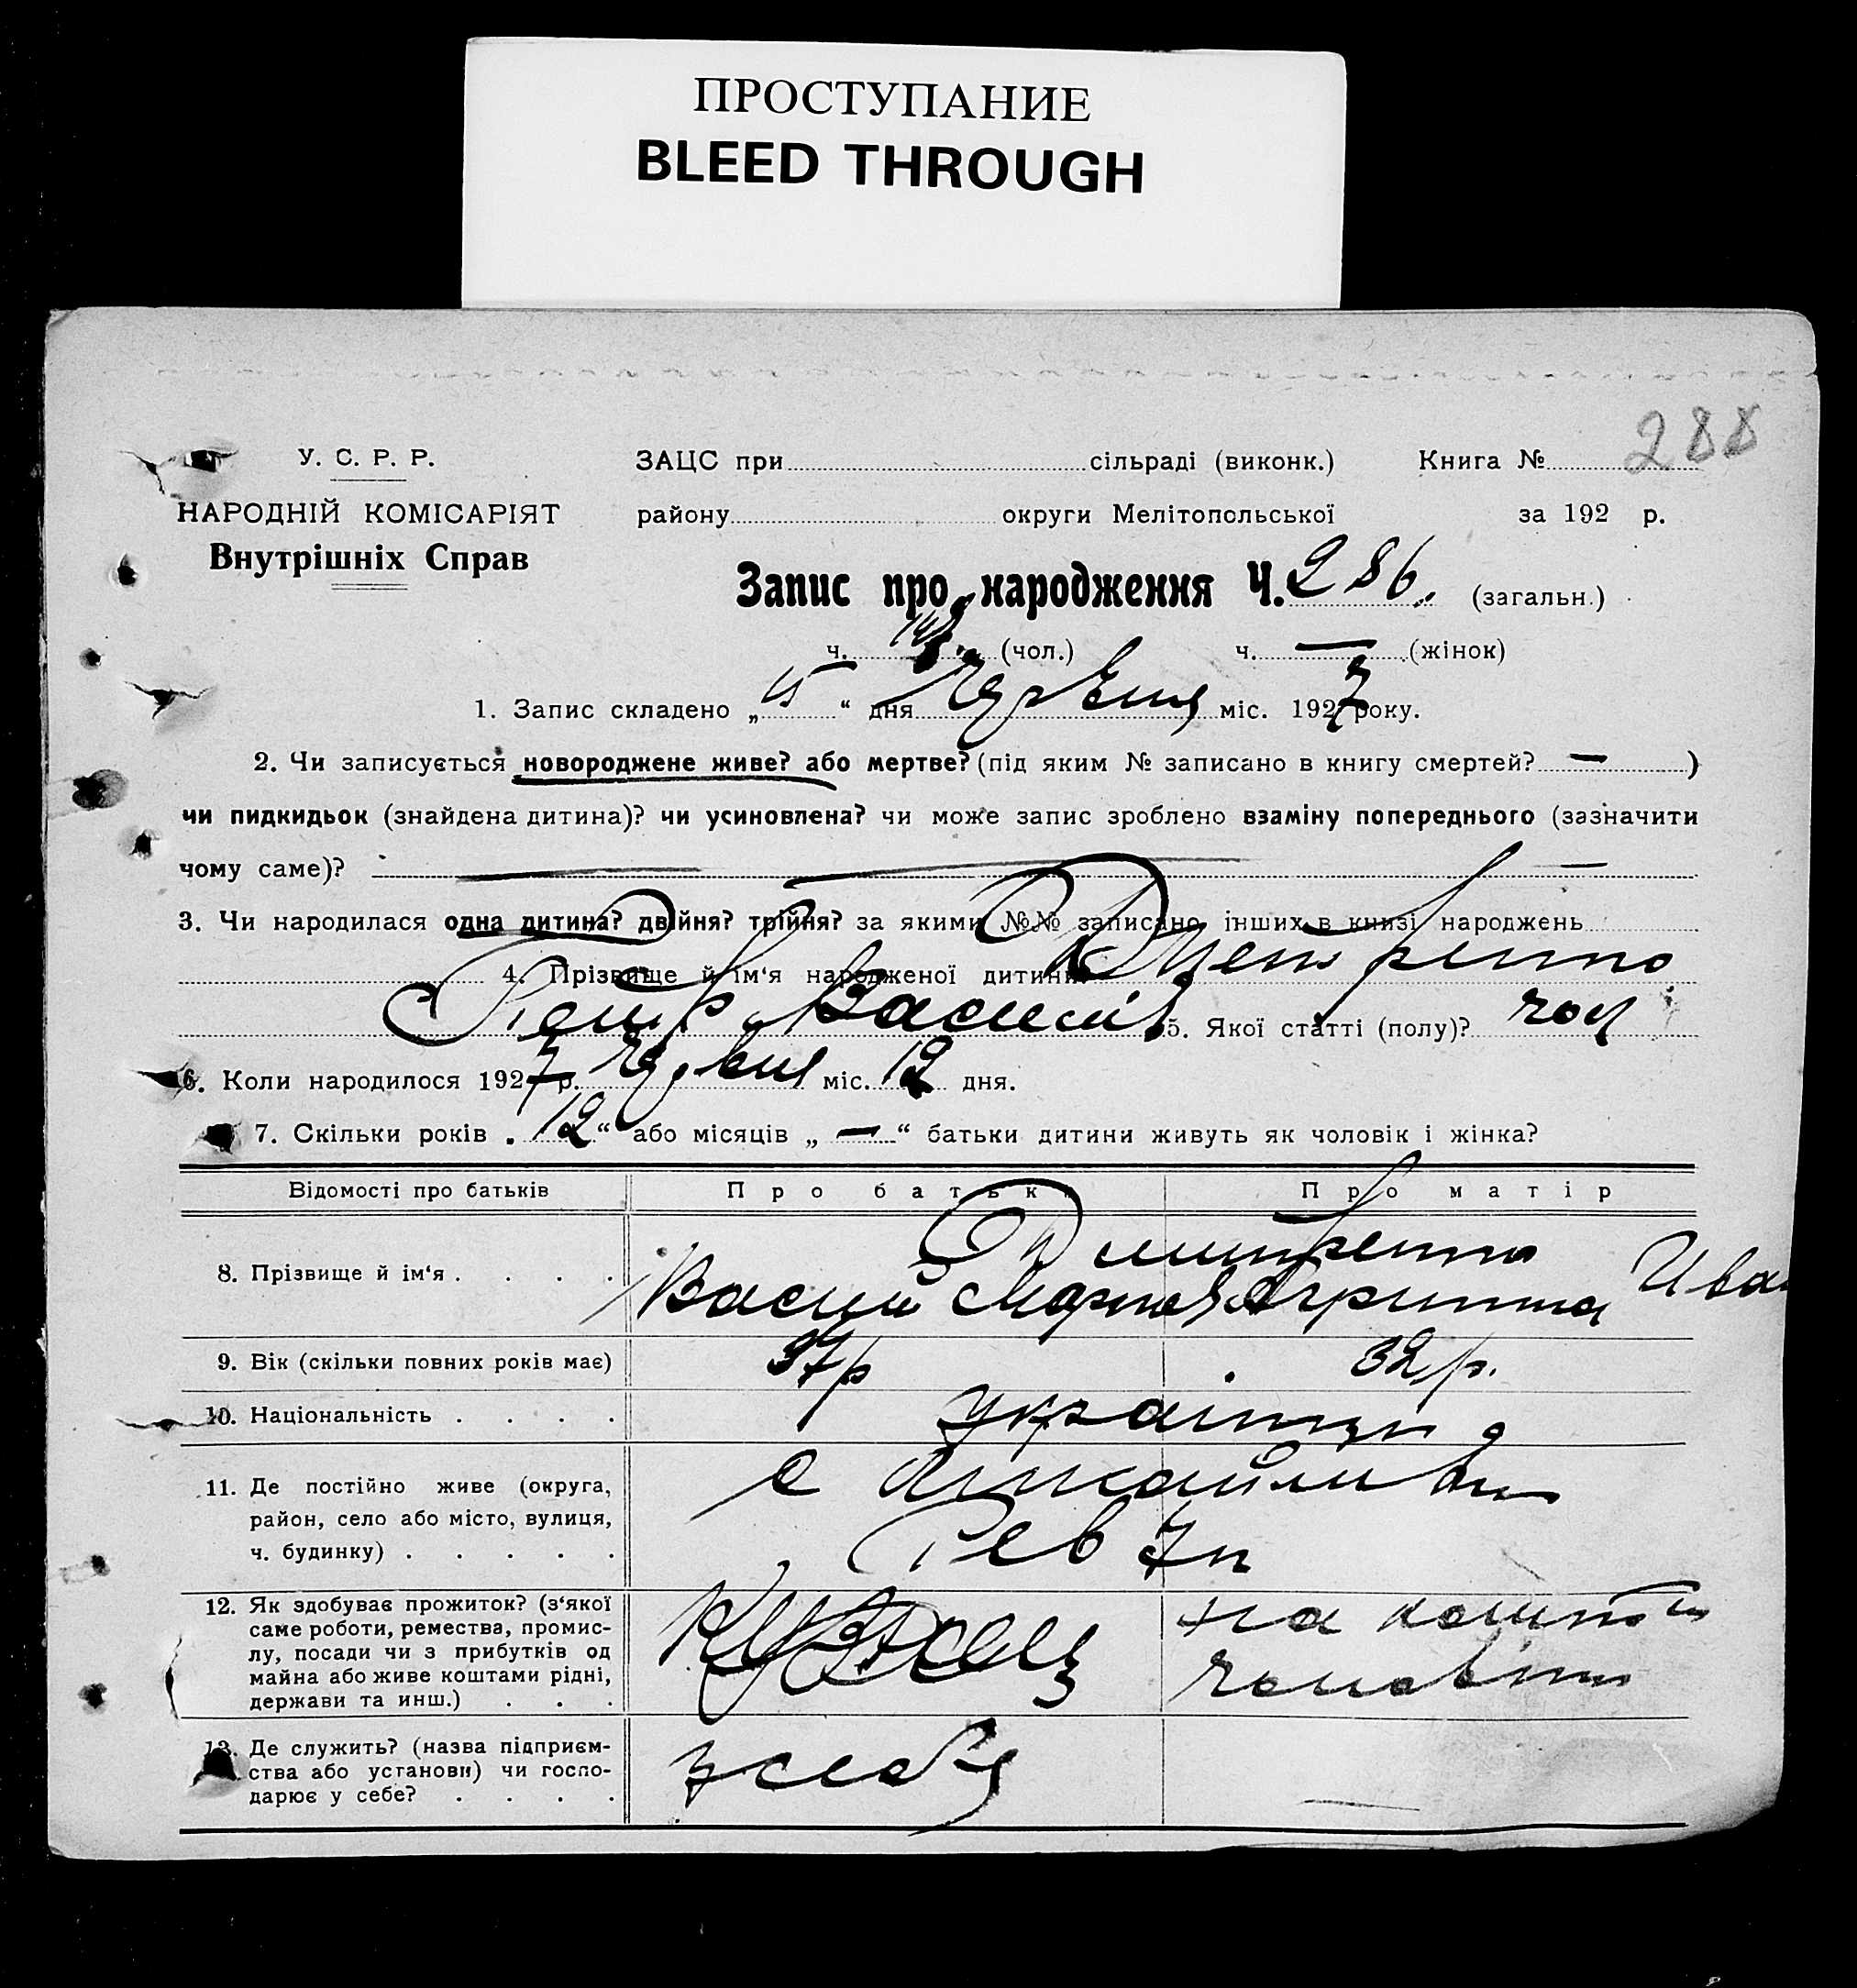 ПРОСТУПАНИЕ
BLEED THROUGH
288
У. С. Р. Р. ЗАЦС при сільраді (виконк.) Книга №
НАРОДНІЙ КОМІСАРІЯТ району округи Мелітопольської за 192 р.
Внутрішніх Справ
Запис про народження Ч. 286. (загальн.)
ч. (чол.) ч. — (жінок)
1. Запис складено „ 15 “ дня Червня міс. 1927 року.
2. Чи записується новороджене живе? або мертве? (під яким № записано в книгу смертей? — )
чи пидкидьок (знайдена дитина)? чи усиновлена? чи може запис зроблено взаміну попереднього (зазначити
чому саме)? —
3. Чи народилася одна дитина? двійня? трійня? за якими №№ записано інших в книзі народжень
4. Прізвище й ім‘я народженої дитини Дметренко
Петр Василів 5. Якої статті (полу)? чол
6. Коли народилося 1927 р. Червня міс. 12 дня.
7. Скільки років „ 12 “ або місяців „ — “ батьки дитини живуть як чоловік і жінка?
Відомості про батьків Про батька Про матір
8. Прізвище й ім‘я . . . . Дмитренко
Василь Марков Агрипина Ива
9. Вік (скільки повних років має) 37р 32р.
10. Національність . . . . українци
11. Де постійно живе (округа, район, село або місто, вулиця, ч. будинку) . . . . . с Михайлівка
Рев 7п
12. Як здобуває прожиток? (з‘якої саме роботи, ремества, промислу, посади чи з прибутків од майна або живе коштами рідні, держави та инш.) . . . на кошти
чоловіка
13. Де служить? (назва підприємства або установи) чи господарює у себе? . . . . у себя —